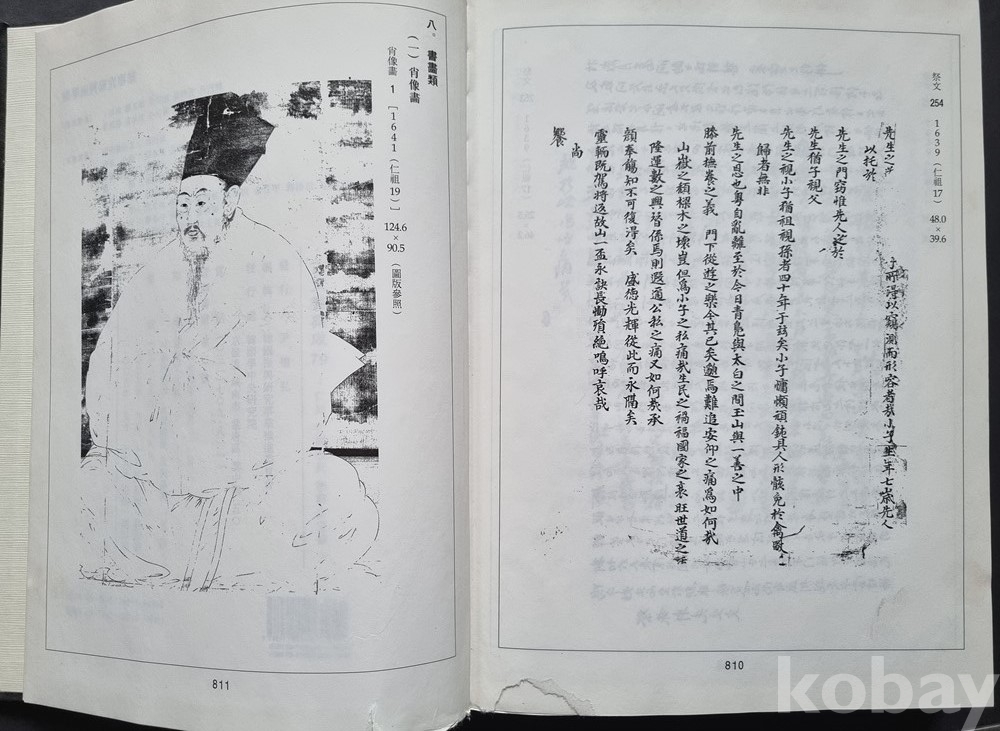 祭文 254 1639 (仁祖 17) 48.0×39.6
先生之 子所得以窺測而形容者哉小子生年七歲先人
以托於
先生之門窃惟先人之於
先生猶子視父
先生之視小子猶祖視孫者四十年于玆矣小子慵懶頑鈍具人形骸免於禽獸
歸者無非
先生之恩也粤自亂離至於今日青鳧與太白之間玉山與一善之中
膝前撫摹之義 門下從遊之樂今其已矣邈焉難追安仰之痛爲如何哉
山嶽之頹樑木之壞豈但爲小子之私痛哉生民之禍福國家之衰旺世道之
隆運數之興皆係焉則遐邇公私之痛又如何哉承
顔奉觴知不可復淂矣 盛德光輝從此而永隔矣
靈輀既駕將返故山一盃永訣長慟殞絶嗚呼哀哉
尚
饗
810
八. 書畫類
(一) 肖像畵
肖像畵 1 [1641 (仁祖 19)] 124.6×90.5 (圖版參照)
811
kobay